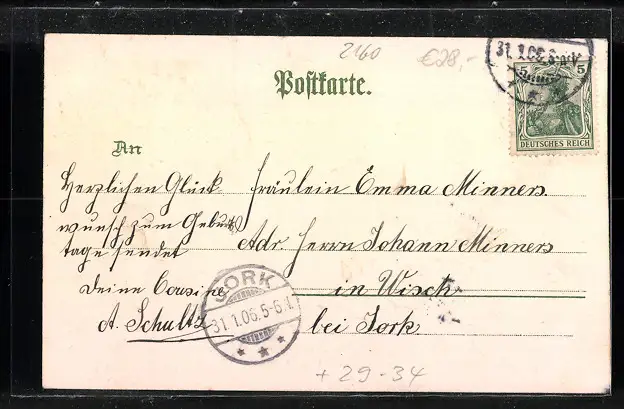 2160
€28,-
31.1.06.
5
DEUTSCHES REICH
Postkarte.
An
Herzlichen Glück
wunsch zum Geburts
tage sendet
Deine Cousine
A. Schultz
Fräulein Emma Minners.
Adr. Herrn Johann Minners
in Wisch
bei Jork.
JORK
31.1.06.5-6.N.
+ 29-34